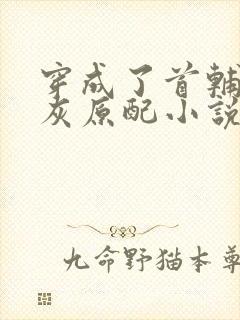 穿成了首輔
灰原配小說
九命野猫本尊